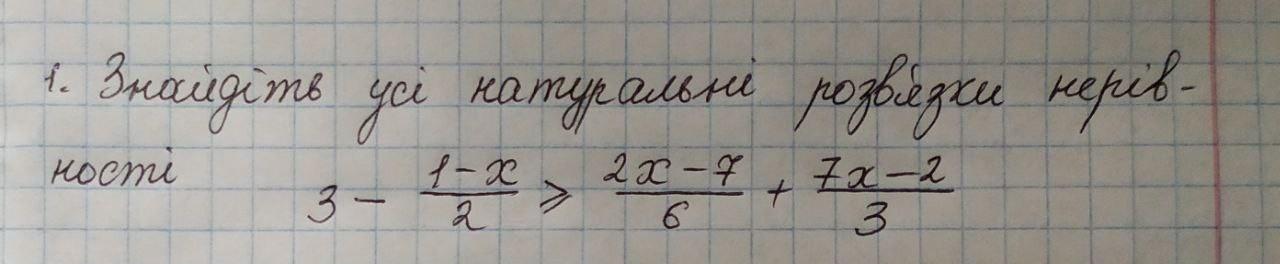 1. Знайдіть усі натуральні розв'язки нерів-
ності 3 - \frac{1-x}{2} ⩾ \frac{2x-7}{6} + \frac{7x-2}{3}